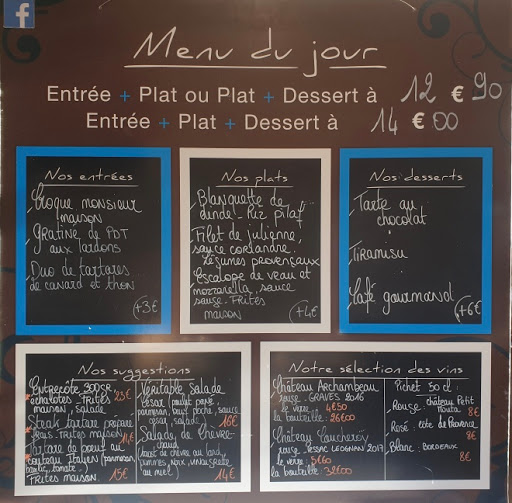 f
Menu du jour
Entrée + Plat ou Plat + Dessert à 12 € 90
Entrée + Plat + Dessert à 14 € 00
Nos entrées
Croque monsieur
maison
Gratine de PDT
aux lardons
Duo de tartares
de canard et thon
(+3€)
Nos plats
Blanquette de
dinde. Riz pilaf
Filet de julienne,
sauce coriandre.
Légumes provençaux
Escalope de veau et
mozzarella, sauce
sauge. Frites
maison
(+4€)
Nos desserts
Tarte au
chocolat
Tiramisu
Café gourmand
(+6€)
Nos suggestions
Entrecôte 300gr
échalotes. Frites 23€
maison, salade
Steak tartare préparé
frais. Frites maison
Tartare de bœuf au
couteau Italien (parmesan,
basilic, tomate)
Frites maison 15€
Véritable Salade
César: poulet pané,
parmesan, œuf poché, sauce
césar, salade 16€
Salade de Chèvre-
chaud
toast de chèvre au lard,
pommes, noix, vinaigrette
au miel) 14€
Notre sélection des vins
Château Archambeau
rouge. GRAVES 2016
le verre 4€50
la bouteille: 26€00
Château Coucheroy
rouge. PESSAC LEOGNAN 2017
le verre: 5€60
la bouteille: 32€00
Pichet 50 cl:
Rouge: château Petit
Mouta 8€
Rosé: côte de Provence
8€
Blanc: BORDEAUX
8€